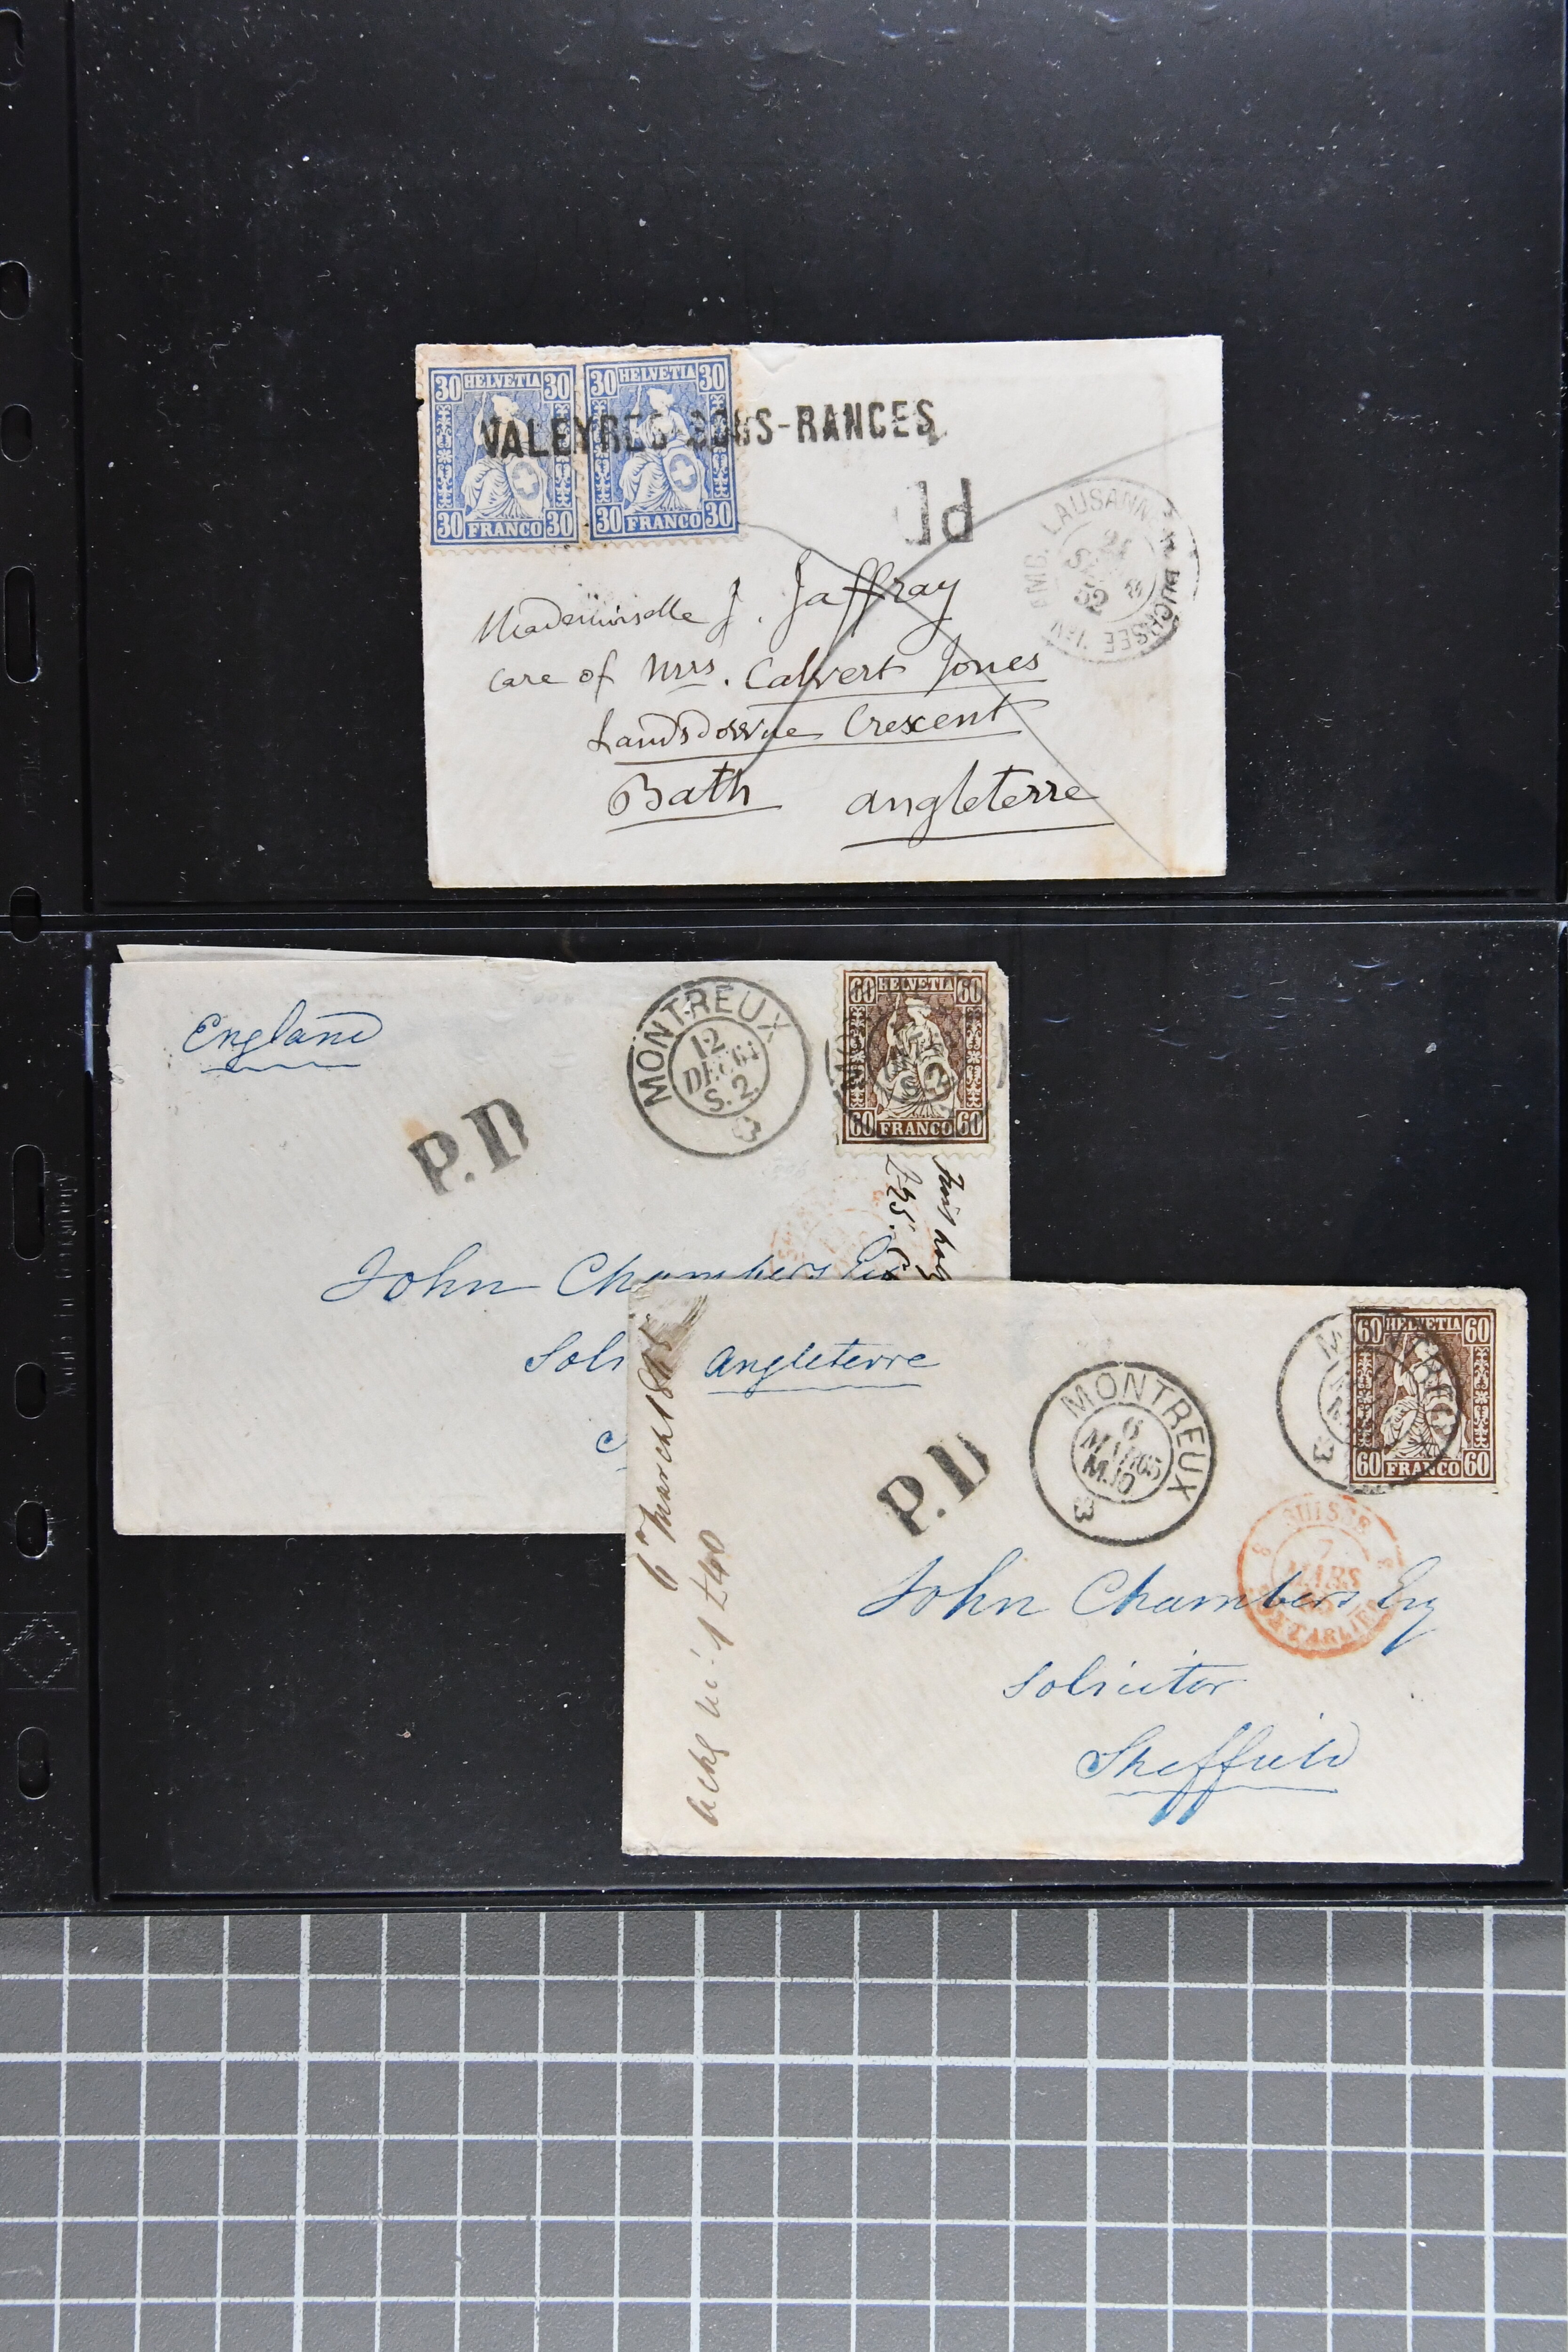 30 HELVETIA 30
30 FRANCO 30
30 HELVETIA 30
30 FRANCO 30
VALEYRES-SOUS-RANCES
PD
AMB. LAUSANNE
Mademoiselle J. Jaffray
care of Mrs. Calvert Jones
Landsdowne Crescent
Bath Angleterre
England
P.D
MONTREUX
12
DEC
S. 2
60 HELVETIA 60
60 FRANCO 60
John Chambers Esq
Angleterre
P.D
MONTREUX
6
MAR 65
M.10
60 HELVETIA 60
60 FRANCO 60
SUISSE
7
MARS
PONTARLIER
6 March 1865
£40
John Chambers Esq
Solicitor
Sheffield